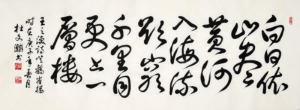 白日依
山尽
黄河
入海流
欲窮
千里目
更上一
層楼
王之涣诗登鹳雀楼